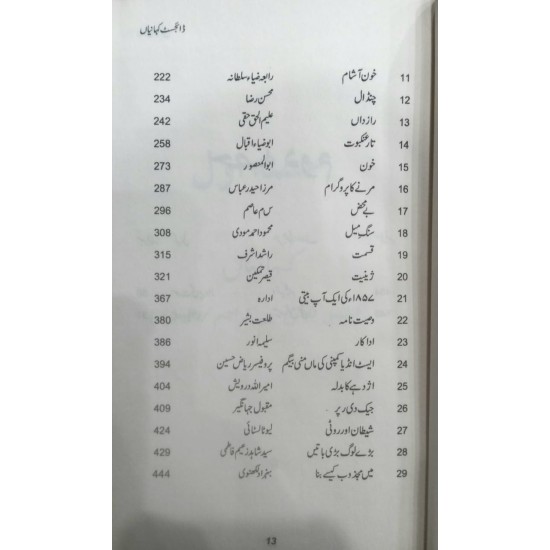 ڈائجسٹ کہانیاں
11 خون آشام رابعہ ضیاء سلطانہ 222
12 چنڈال محسن رضا 234
13 رازداں علیم الحق حقی 242
14 تار عنکبوت ابو ضیاء اقبال 258
15 خون ابو المنصور 273
16 مرنے کا پروگرام مرزا حیدر عباس 287
17 بے محض س م عاصم 296
18 سنگ میل محمود احمد مودی 308
19 قسمت راشد اشرف 315
20 ژینیت قیصر تمکین 321
21 ۱۸۵۷ء کی ایک آپ بیتی ادارہ 367
22 وصیت نامہ طلعت بشیر 380
23 اداکار سلیمہ انور 386
24 ایسٹ انڈیا کمپنی کی ماں منی بیگم پروفیسر ریاض حسین 394
25 اژدہے کا بدلہ امیر اللہ درویش 404
26 جیک دی رپر مقبول جہانگیر 409
27 شیطان اور روٹی لیو ٹالسٹائی 424
28 بڑے لوگ بڑی باتیں سید شاہد زعیم فاطمی 429
29 میں مجذوب کیسے بنا بہزاد لکھنوی 444
13